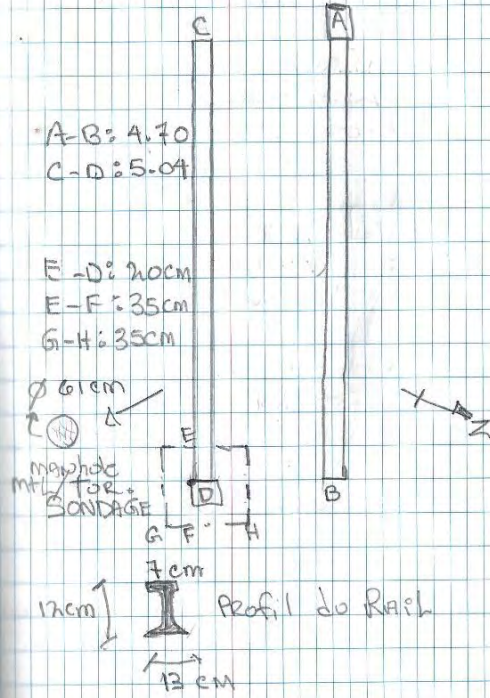 C
A
A-B: 4.70
C-D: 5.04
E-D: 20cm
E-F: 35cm
G-H: 35cm
Ø 61cm
N
E
manhole
mtl/FOR.
SONDAGE
D
B
G F H
7cm
12cm
Profil do RAIL
13 cm